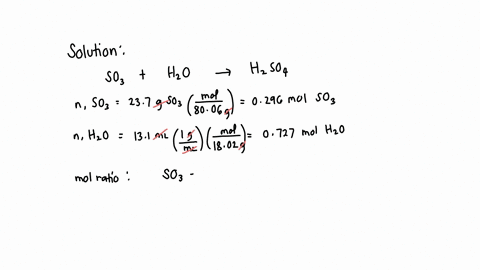 Solution:
SO₃ + H₂O → H₂SO₄
n, SO₃ = 23.7 g SO₃ (mol / 80.06 g) = 0.296 mol SO₃
n, H₂O = 13.1 mL (1 g / mL) (mol / 18.02 g) = 0.727 mol H₂O
mol ratio : SO₃ -